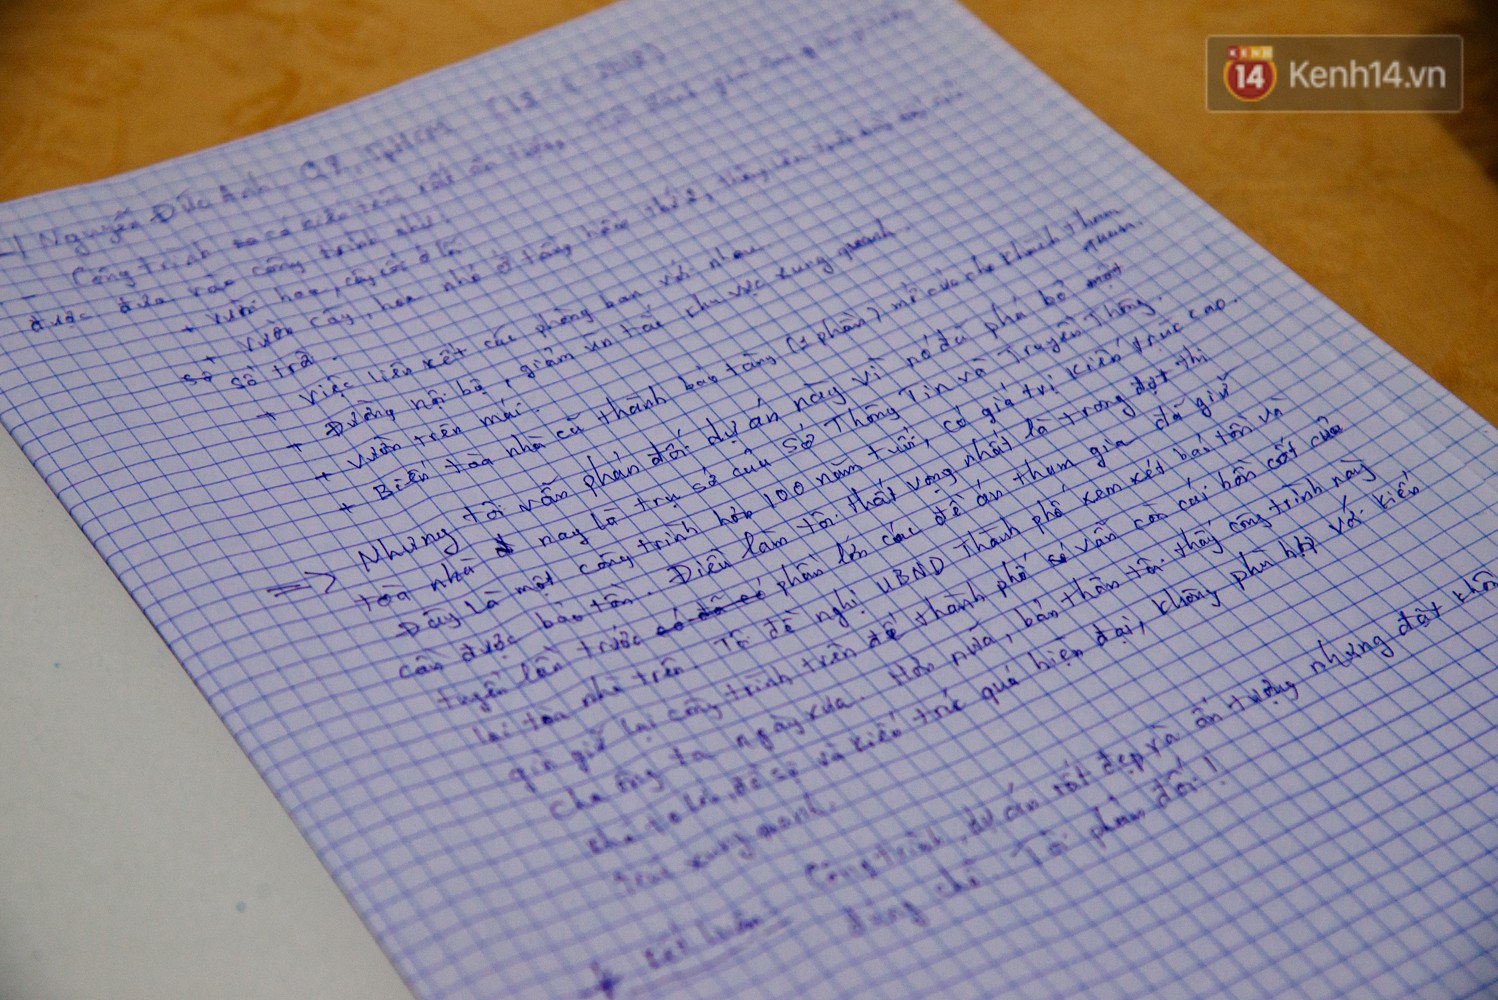 KENH 14 Kenh14.vn
Nguyễn Đức Anh, Q7, TpHCM
- Công trình có kiến trúc rất ấn tượng
được đưa vào công trình như:
+ Vườn hoa, cây cối ở
+ Vườn cây, hoa nhỏ ở tầng hầm thứ 2,
số trời.
+ Việc liên kết các phòng ban với nhau.
+ Đường nội bộ, giảm ùn tắc khu vực xung quanh.
+ Vườn trên mái.
+ Biến tòa nhà cũ thành bảo tàng (1 phần) mở cửa cho khách tham quan.
=> Nhưng tôi vẫn phản đối dự án này vì nó đã phá bỏ một
tòa nhà nay là trụ sở của Sở Thông Tin và Truyền Thông.
Đây là một công trình hơn 100 năm tuổi, có giá trị kiến trúc cao.
cần được bảo tồn. Điều làm tôi thất vọng nhất là trong đợt thi
tuyển lần trước có đã có phần lớn các đề án tham gia đã giữ
lại tòa nhà trên. Tôi đề nghị UBND Thành phố xem xét bảo tồn và
gìn giữ lại công trình trên để thành phố sẽ vẫn còn cái hồn cốt của
cha ông ta ngày xưa. Hơn nữa, bản thân tôi thấy công trình này
che to lớn, đồ sộ và kiến trúc quá hiện đại, không phù hợp với kiến
trúc xung quanh.
* Kết luận: Công trình, dự án rất đẹp và ấn tượng nhưng đặt
đúng chỗ. Tôi phản đối!